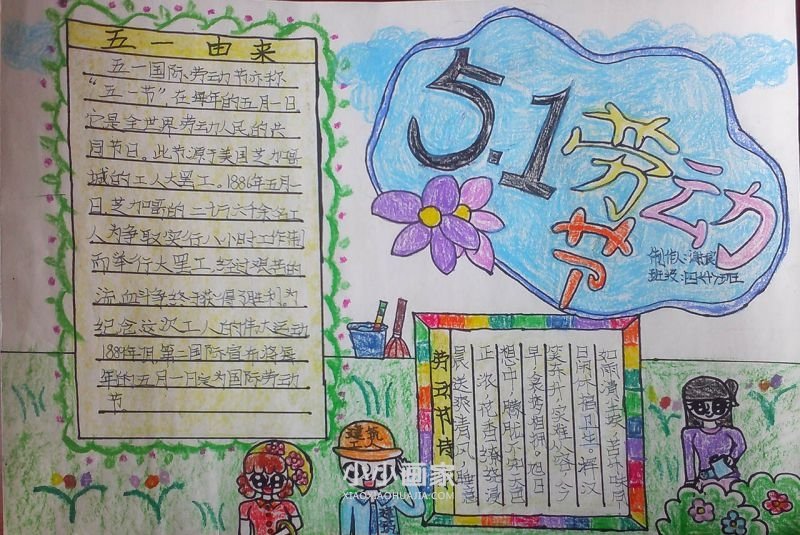 五一由来
五一国际劳动节亦称
“五一节”,在每年的五月一日
它是全世界劳动人民的共
同节日。此节源于美国芝加哥
城的工人大罢工。1886年五月一
日,芝加哥的二十一万六千余名工
人为争取实行八小时工作制
而举行大罢工,经过艰苦的
流血斗争终于获得了胜利。为
纪念这次工人的伟大运动
1889年7月第二国际宣布将每
年的五月一日定为国际劳动
节
5.1劳动
节
制作人:
班级:四
劳动节诗
晨送爽清风,睡意
正浓,花香缭绕漫
想中,朦胧
早,
笑东升,实难从容,今
日闲休搞卫生。挥汉
如雨满
建筑
工人
建筑
小小画家
XIAOXIAOHUAJIA.COM